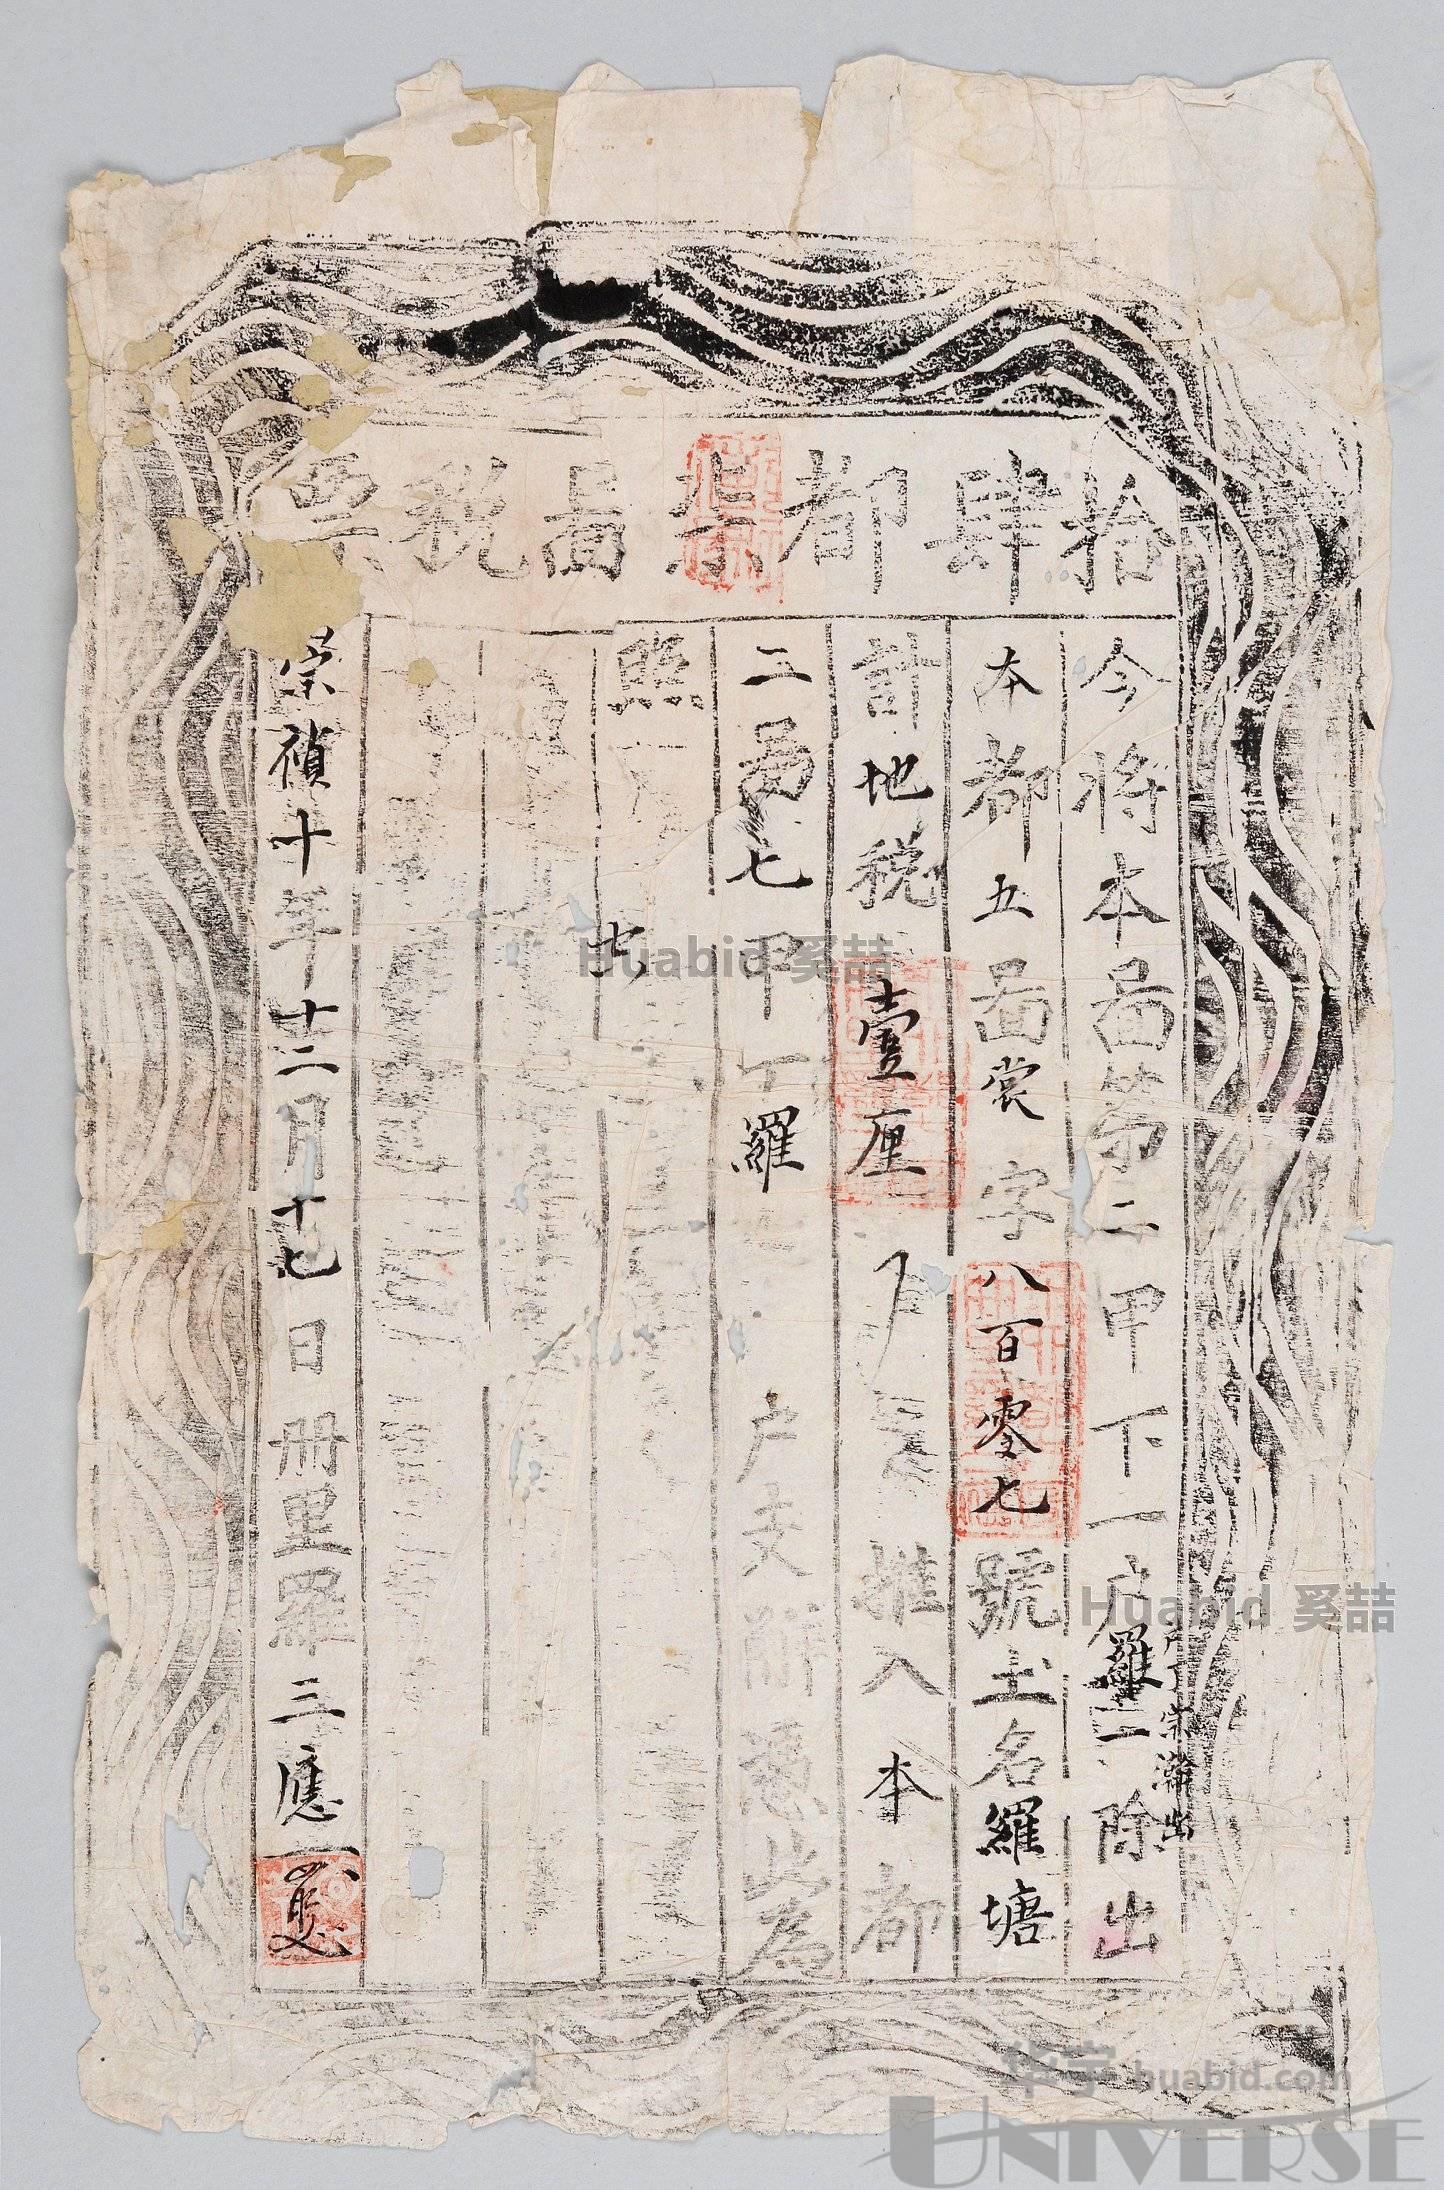 拾肆都柒啚税票
今將本啚第二甲下一户羅二除出
户丁宗瀚出
本都五啚裳字八百零七號土名羅塘
計地税壹厘推入本都
二啚七甲丁羅户支解憑此為
照
崇禎十年十二月十七日冊里羅三應
Huabid 奚喆
Huabid 奚喆
华宇 huabid.com
UNIVERSE